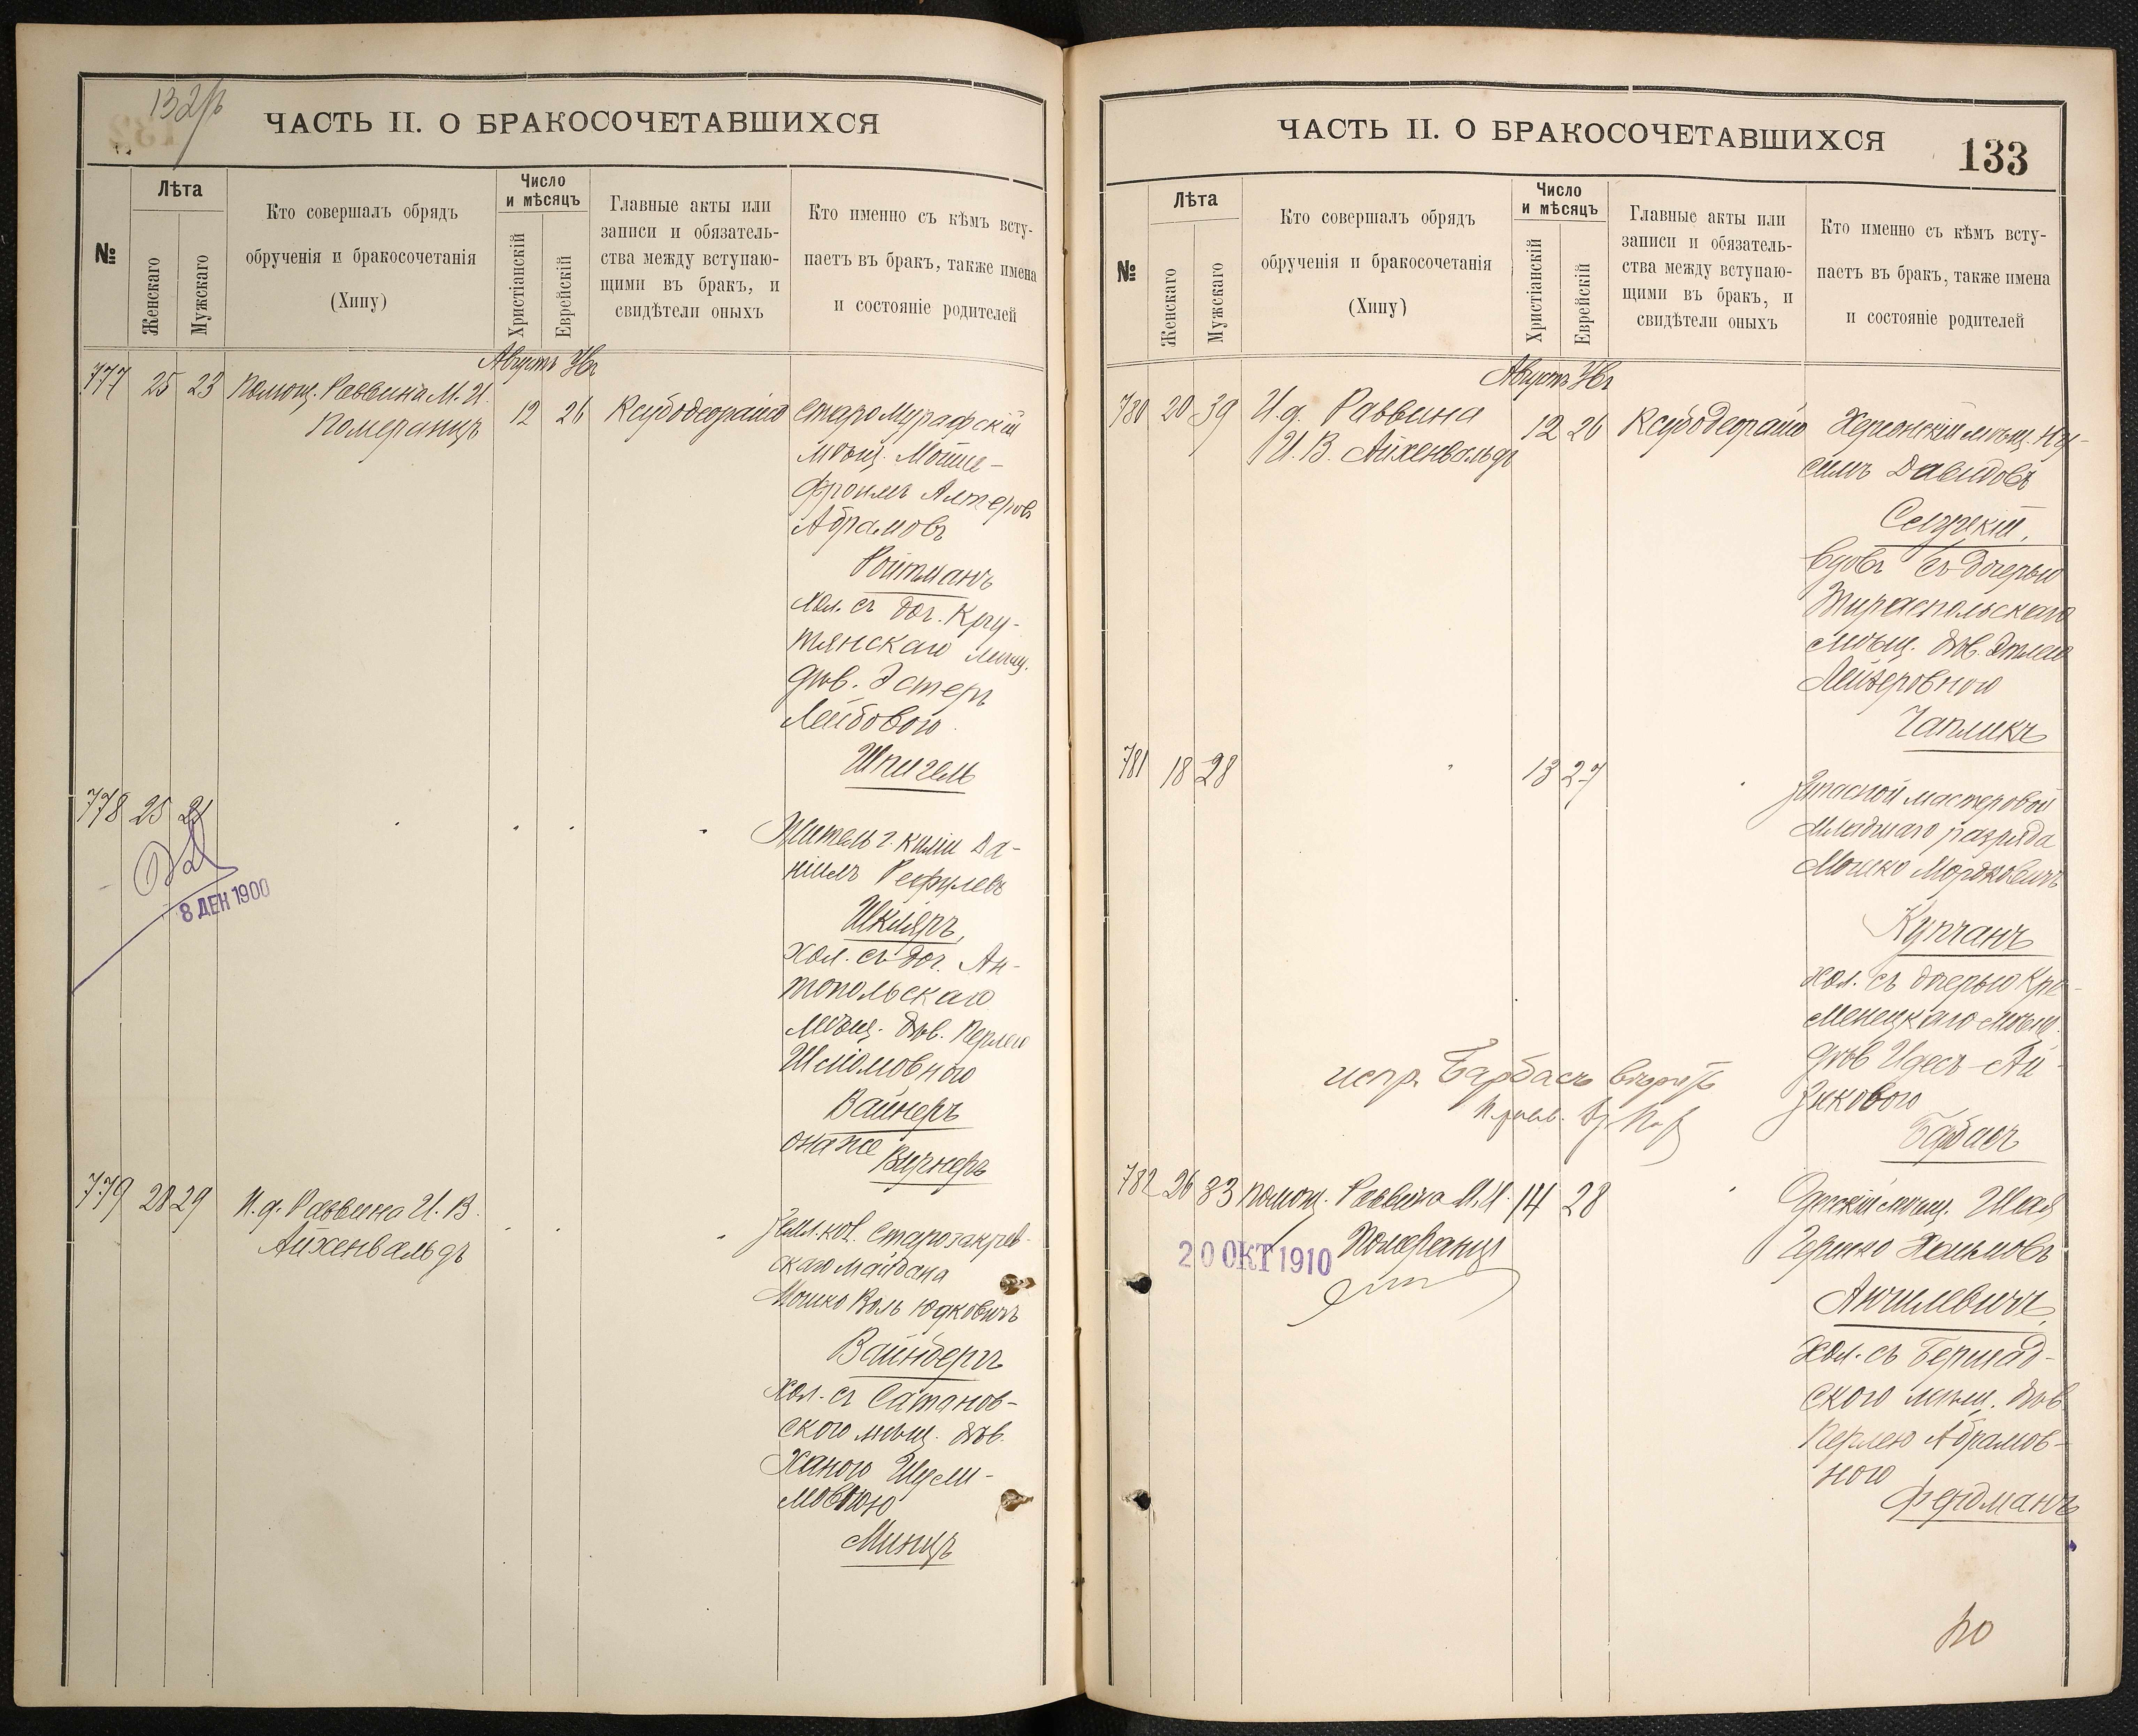 132/б
ЧАСТЬ II. О БРАКОСОЧЕТАВШИХСЯ
№
Лѣта
Женскаго
Мужскаго
Кто совершалъ обрядъ
обрученія и бракосочетанія
(Хипу)
Число
и мѣсяцъ
Христіанскій
Еврейскій
Главные акты или
записи и обязатель-
ства между вступаю-
щими въ бракъ, и
свидѣтели оныхъ
Кто именно съ кѣмъ всту-
паетъ въ бракъ, также имена
и состояніе родителей
Августъ
777 25 23 Помощ. Раввина М. И.
Померанцъ
12 26
Старо Мурафскій
мѣщ. Мойше-
Фроимъ Алтеровъ
Абрамовъ
Ройтманъ
хол. съ доч. Кру-
тянскаго мѣщ.
дѣв. Эстеръ
Лейбовою
Шпигель
778 25 21
8 ДЕН 1900
Житель г. Киліи Да-
ніилъ Рефулевъ
Шкляръ,
хол. съ доч. Ан-
топольскаго
мѣщ. дѣв. Перлею
Шліомовною
Вайнеръ
она же Вирнеръ
779 28 29 И. д. Раввина И. В.
Айхенвальдъ
Зем. кол. Старозакрев-
скаго Майдана
Мошко Воль Юдковичъ
Вайнбергъ
хол. съ Сатанов-
ского мѣщ. дѣв.
Ханою Шули-
мовною
Минцъ
ЧАСТЬ II. О БРАКОСОЧЕТАВШИХСЯ
133
№
Лѣта
Женскаго
Мужскаго
Кто совершалъ обрядъ
обрученія и бракосочетанія
(Хипу)
Число
и мѣсяцъ
Христіанскій
Еврейскій
Главные акты или
записи и обязатель-
ства между вступаю-
щими въ бракъ, и
свидѣтели оныхъ
Кто именно съ кѣмъ всту-
паетъ въ бракъ, также имена
и состояніе родителей
Августъ
780 20 39 И. д. Раввина
И. В. Айхенвальдъ
12 26
Херсонскій мѣщ. Ну-
симъ Давидовъ
вдовъ съ дочерью
Тираспольскаго
мѣщ. дѣв. Этлею
Лейзеровною
Чапликъ
781 18 28 13 27
Запасной мастеровой
младшаго разряда
Мошко Мордковичъ
Купчанъ
хол. съ дочерью Кре-
менецкаго мѣщ.
дѣв Идесъ-Ай-
зиковою
испр. Барбасъ вѣрно
782 26 33 Помощ. Раввина М. И.
Померанцъ
14 28
20 ОКТ 1910
Одесскій мѣщ. Шая
Гершко Хаимовъ
Анчилевичъ,
хол. съ Бершад-
ского мѣщ. дѣв.
Перлею Абрамов-
ною
Фельдманъ